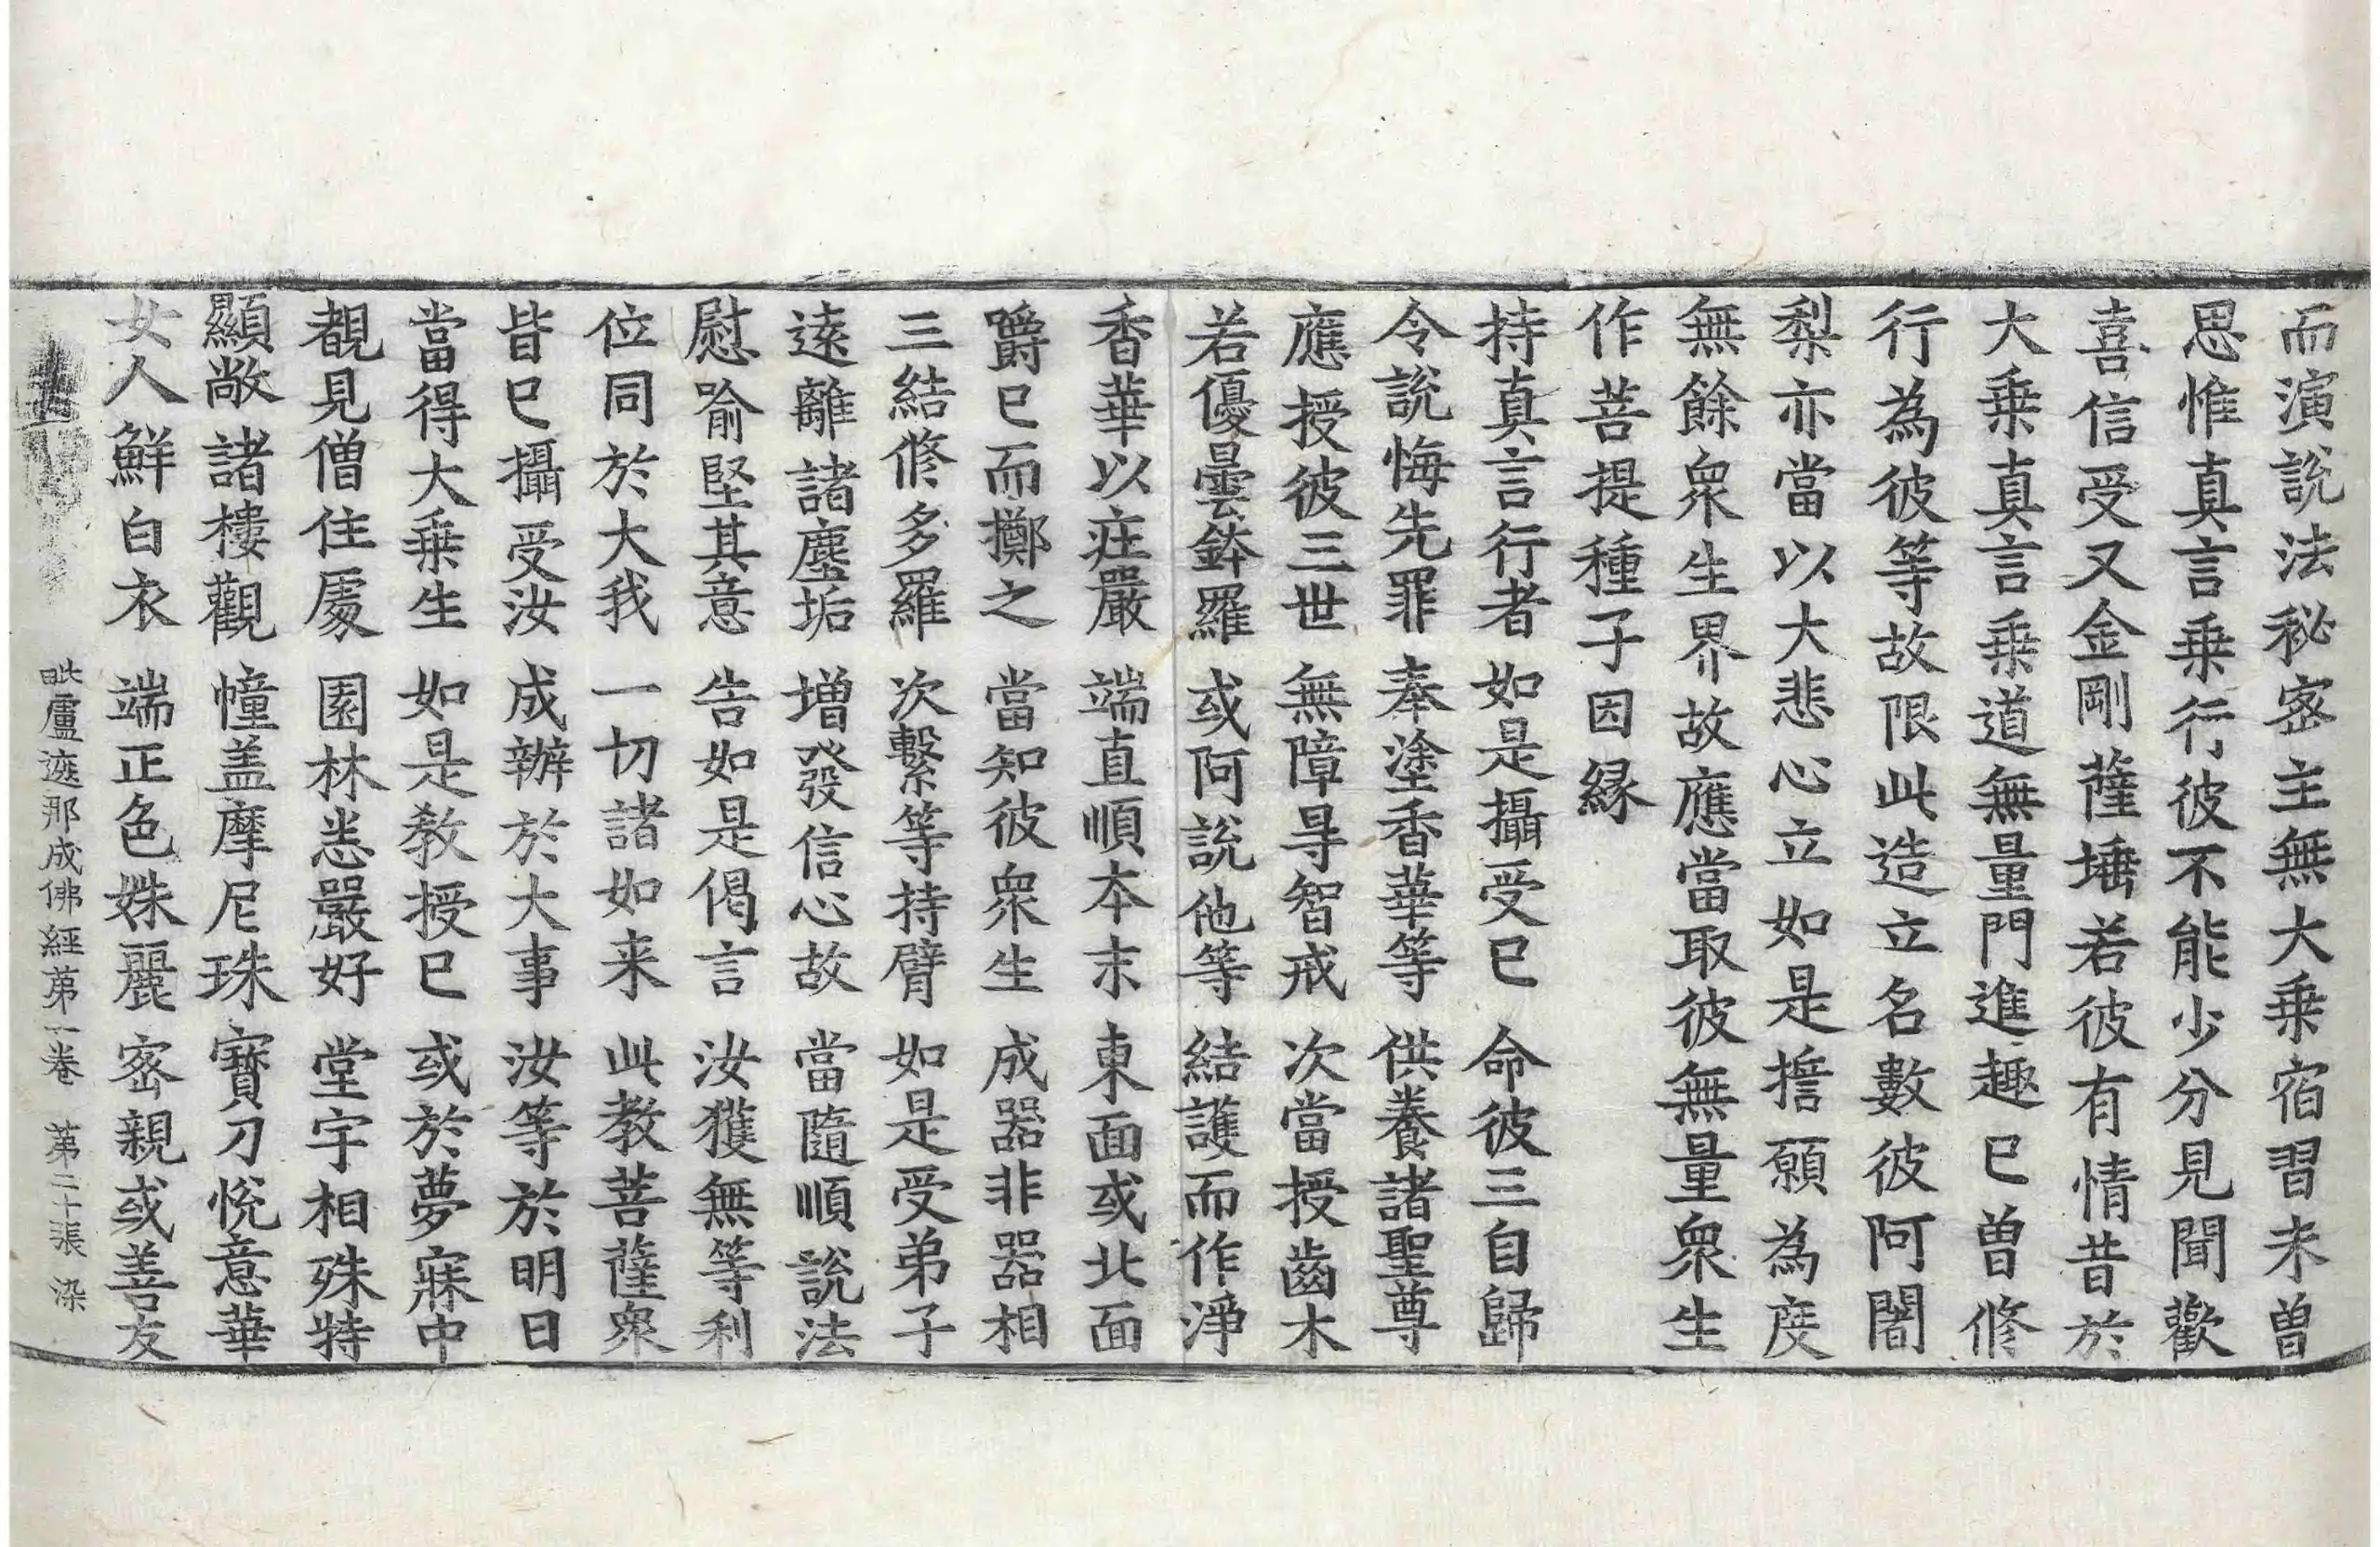 而演說法秘密主無大乗宿習未曾
思惟真言乗行彼不能少分見聞歡
喜信受又金剛薩埵若彼有情昔於
大乗真言乗道無量門進趣已曾修
行為彼等故限此造立名數彼阿闍
梨亦當以大悲心立如是擔願為度
無餘衆生界故應當取彼無量衆生
作菩提種子因縁
持真言行者　如是攝受已　命彼三自歸
令說悔先罪　奉塗香華等　供養諸聖尊
應授彼三世　無障㝵智戒　次當授齒木
若優曇鉢羅　或阿說他等　結護而作淨
香華以莊嚴　端直順本末　東面或北面
嚼已而擲之　當知彼衆生　成器非器相
三結修多羅　次繫等持臂　如是受弟子
遠離諸塵垢　增發信心故　當隨順說法
慰喻堅其意　告如是偈言　汝獲無等利
位同於大我　一切諸如来　此教菩薩衆
皆已攝受汝　成辦於大事　汝等於明日
當得大乗生　如是教授已　或於夢寐中
覩見僧住處　園林悉嚴好　堂宇相殊特
顯敞諸樓觀　幢盖摩尼珠　寶刀悅意華
女人鮮白衣　端正色姝麗　密親或善友
毗盧遮那成佛經苐一卷　苐二十張　染